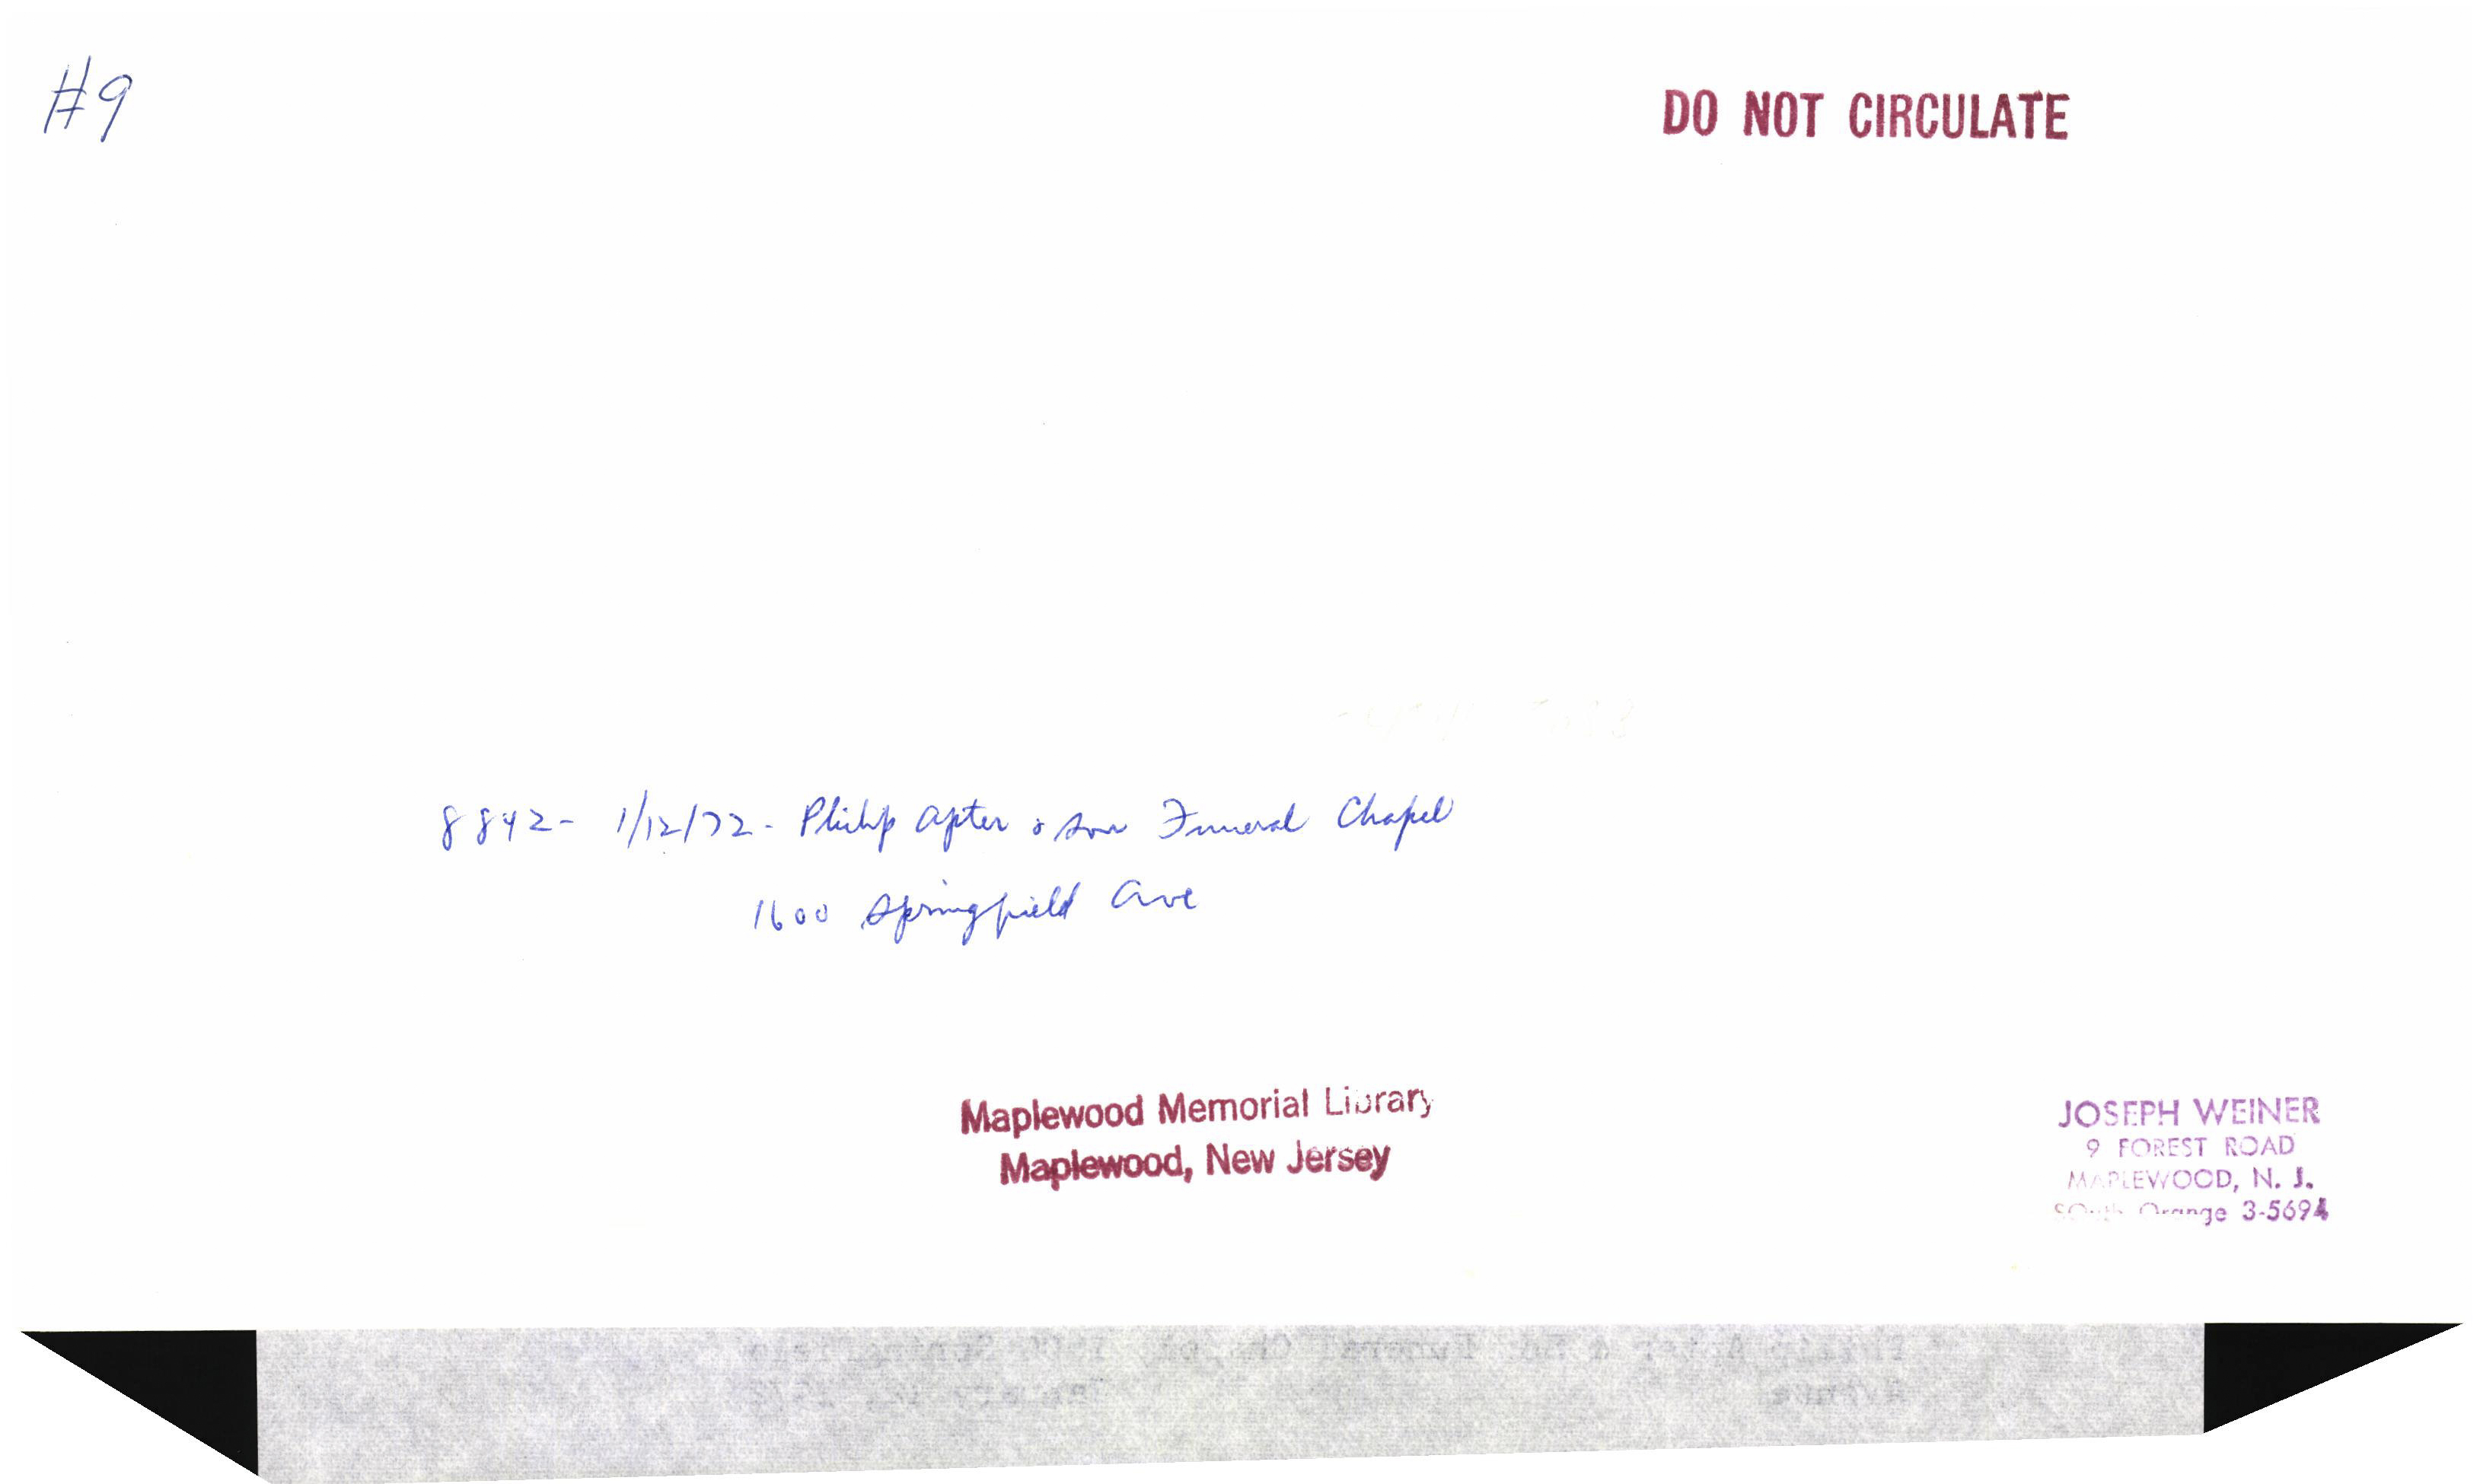 #9
DO NOT CIRCULATE
8842- 1/12/72- Philip Apter & Son Funeral Chapel
1600 Springfield Ave
Maplewood Memorial Library
Maplewood, New Jersey
JOSEPH WEINER
9 FOREST ROAD
MAPLEWOOD, N. J.
SOuth Orange 3-5694